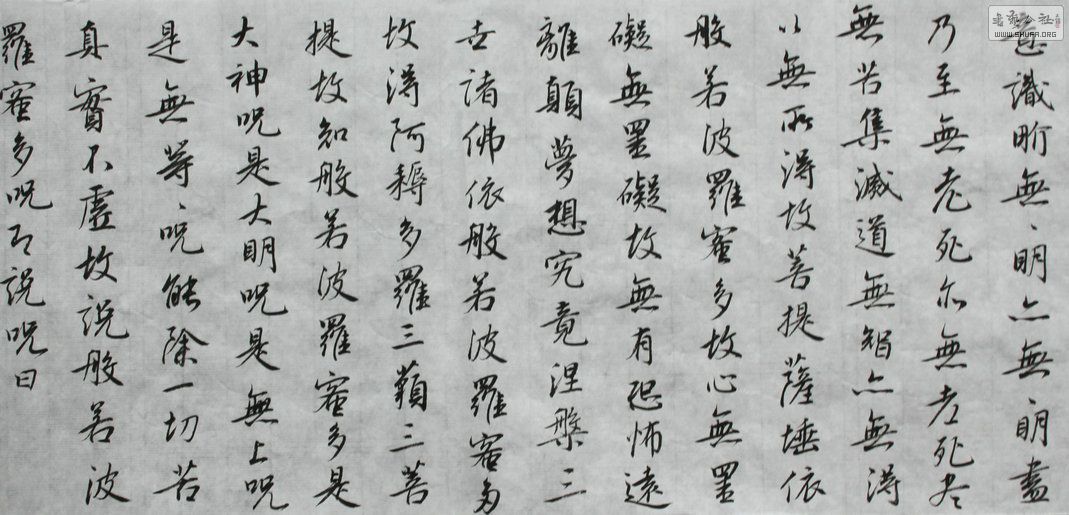 意識界無〻明亦無〻明盡
乃至無老死亦無老死尽
無苦集滅道無智亦無得
以無所得故菩提薩埵依
般若波羅蜜多故心無罣
礙無罣礙故無有恐怖遠
離顛夢想究竟涅槃三
世諸佛依般若波羅蜜多
故得阿耨多羅三藐三菩
提故知般若波羅蜜多是
大神咒是大明咒是無上咒
是無等〻咒能除一切苦
真實不虛故說般若波
羅蜜多咒即說咒曰
書法公社
WWW.SHUFA.ORG